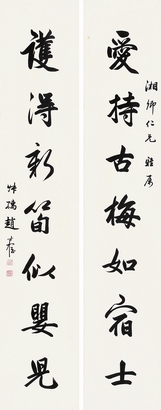 愛持古梅如宿士
湘鄉仁兄雅屬
護得新筍似嬰兒
趙